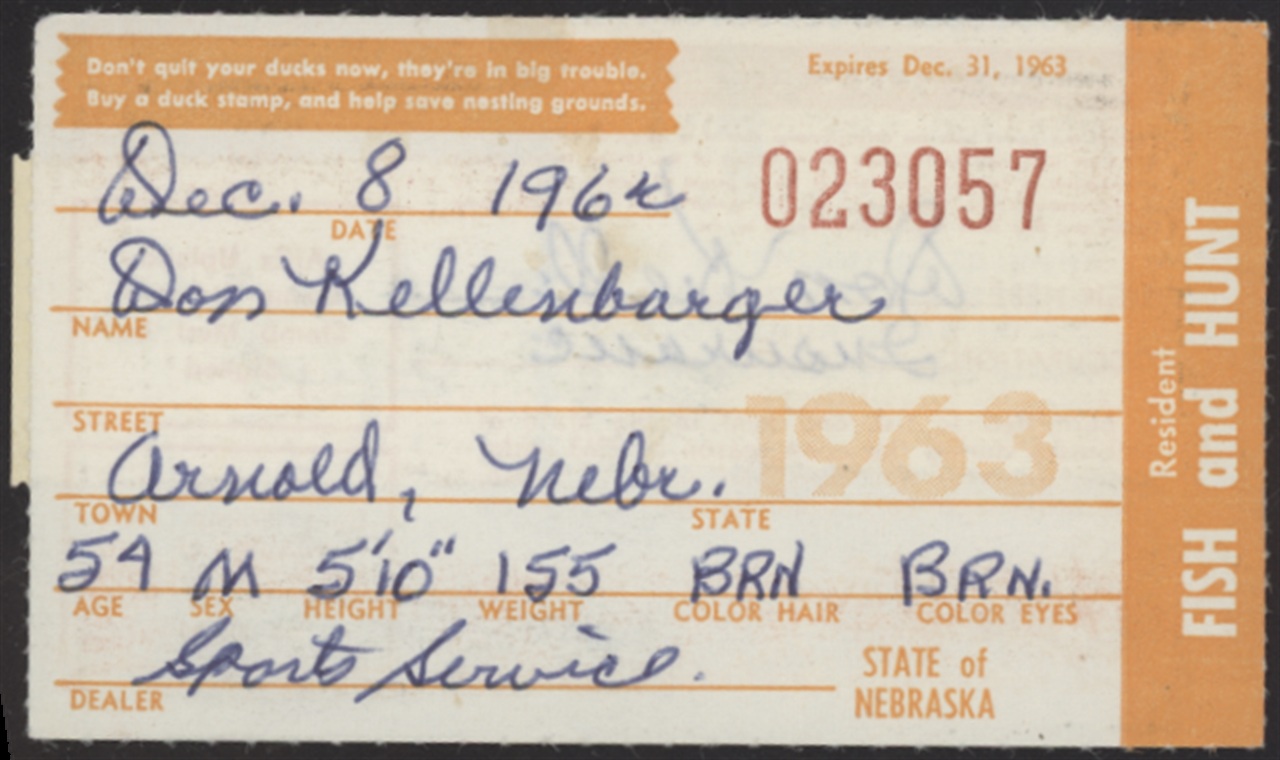 Don't quit your ducks now, they're in big trouble.
Buy a duck stamp, and help save nesting grounds.
Expires Dec. 31, 1963
Dec. 8 1962
023057
DATE
Don Kellenbarger
NAME
STREET
1963
Arnold, Nebr.
TOWN STATE
54 M 5'10" 155 BRN BRN.
AGE SEX HEIGHT WEIGHT COLOR HAIR COLOR EYES
Sports Service.
DEALER
STATE of
NEBRASKA
Resident
FISH and HUNT